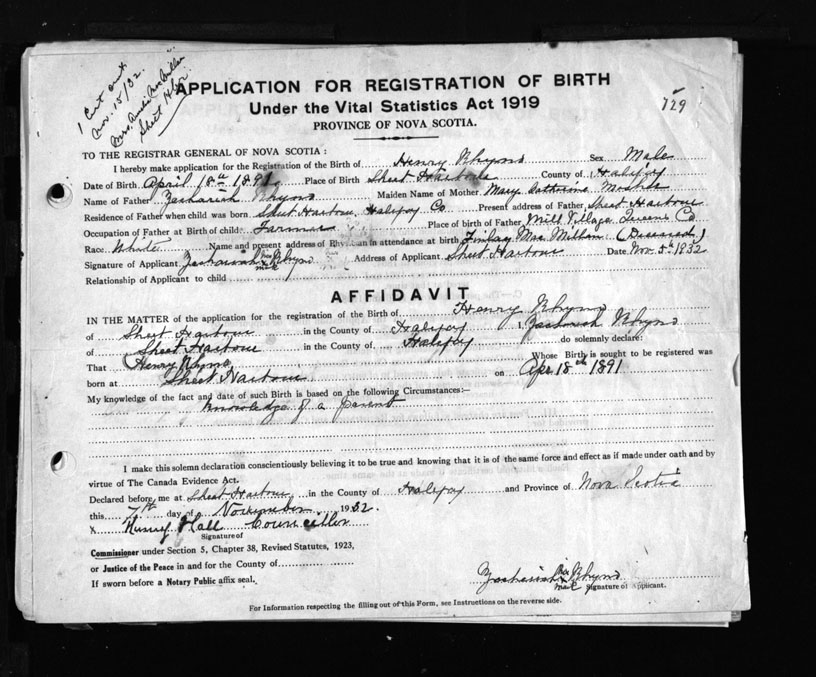 1 Cert out
Nov. 15/32.
Sheet Hbr.
729
APPLICATION FOR REGISTRATION OF BIRTH
Under the Vital Statistics Act 1919
PROVINCE OF NOVA SCOTIA.
TO THE REGISTRAR GENERAL OF NOVA SCOTIA:
I hereby make application for the Registration of the Birth of Henry Rhyno Sex Male
Date of Birth April 18th 1891 Place of Birth Sheet Harbour County of Halifax
Name of Father Zachariah Rhyno Maiden Name of Mother Mary Catherine
Residence of Father when child was born Sheet Harbour, Halifax Co Present address of Father Sheet Harbour
Occupation of Father at Birth of child: Farmer Place of birth of Father Mill Village Queens Co
Race White Name and present address of Physician in attendance at birth Finlay MacMillan (Deceased)
Signature of Applicant Zachariah his x mark Rhyno Address of Applicant Sheet Harbour Date Nov. 5th 1932
Relationship of Applicant to child
AFFIDAVIT
IN THE MATTER of the application for the registration of the Birth of Henry Rhyno
of Sheet Harbour in the County of Halifax I, Zachariah Rhyno
of Sheet Harbour in the County of Halifax do solemnly declare:
That (Henry Rhyno Whose Birth is sought to be registered was
born at Sheet Harbour on Apr 18th 1891
My knowledge of the fact and date of such Birth is based on the following Circumstances:—
Knowledge of a parent
I make this solemn declaration conscientiously believing it to be true and knowing that it is of the same force and effect as if made under oath and by
virtue of The Canada Evidence Act.
Declared before me at Sheet Harbour in the County of Halifax and Province of Nova Scotia
this 7th day of November 1932.
x Henry Hall Councillor
Signature of
Commissioner under Section 5, Chapter 38, Revised Statutes, 1923,
or Justice of the Peace in and for the County of
If sworn before a Notary Public affix seal.
Zachariah his x mark Rhyno
Signature of Applicant
For Information respecting the filling out of this Form, see Instructions on the reverse side.